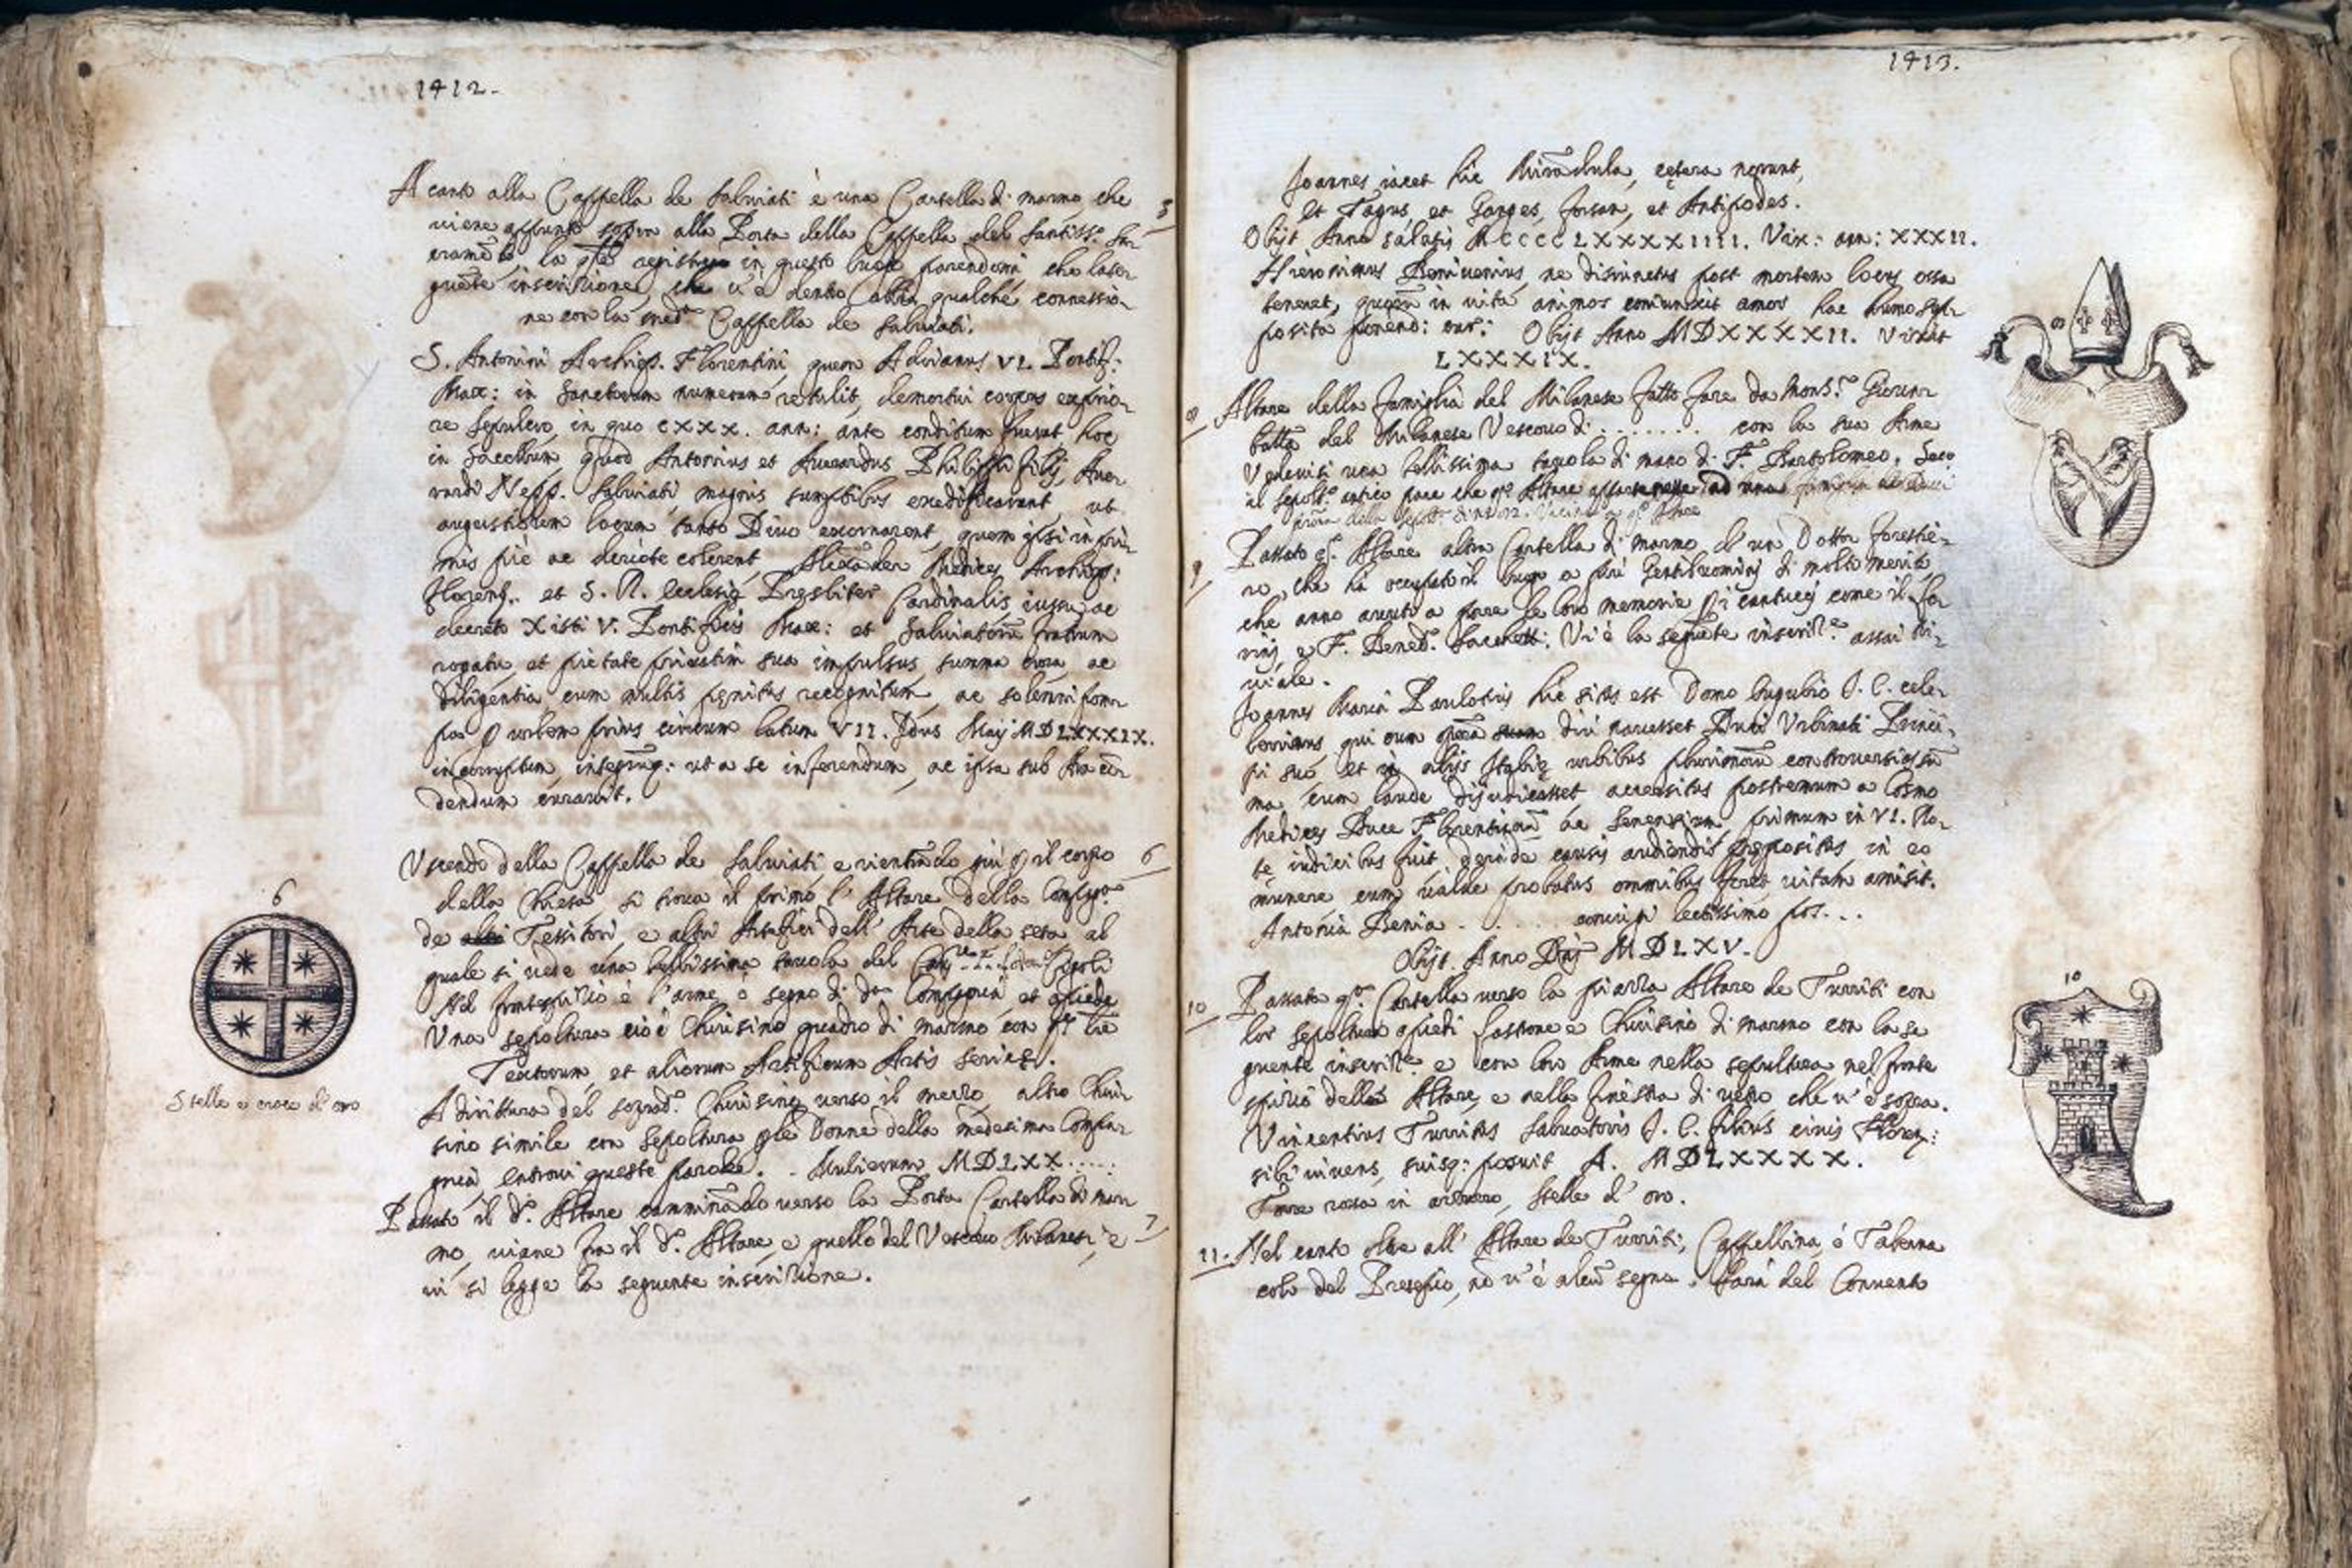 1412.
A canto alla Cappella de Salviati è una Cartella di marmo, che
viene appunto sopra alla Porta della Cappella del Santiss.o Sa-
5
cramẽto, la in questo luogo parendomi, che la se-
guẽte inscrittione, che v'è dentro habbia qualche connessio-
ne con la med.a Cappella de Salviati.
S. Antonini Archiep. Florentini, quem Adrianus VI. Pontif.
Max: in Sanctorum numerum retulit, demortui corpus ex prio-
re sepulcro, in quo CXXX. ann: ante conditum fuerat hoc
in Sacellum, quod Antonius et Averardus Philippi filij, Aver-
rardi Nepp. Salviati, magnis sumptibus exedificarunt, ut
augustiorem locum tanto Divo exornarent, quem ipsi in pri-
mis piè ac colerent, Alexãder Medices Archiep:
Floren. et S. R. Ecclesię Presbiter Cardinalis iussu, ac
decreto Xisti V. Pontificis Max: et Salviatorũ fratrum
rogatu, et pietate privatim sua impulsus, summa cura, ac
diligentia, cum multis pęnitus recognitum, ac solenni pom-
pa ꝑ urbem prius circum latum VII. Idus Maij MDLXXXIX.
incorruptum, integrũq: ut a se inferendum, ac ipsa sub Ara cõ-
dendum curavit.
Uscendo della Cappella de Salviati, e rientrãdo più ꝑ il corpo
6
della Chiesa si trova il primo l'Altare della Compag.a
de Tessitori, e altri Artefici dell'Arte della seta al
quale si vede una bellissima tavola del Cigoli
Nel frontespitio è l'arme, o segno di d.a Compagnia, et a piede
Una sepoltura cioè Chiusino quadro di marmo con
Textorum, et aliorum Artificum Artis sericę.
A dirittura del soprad.o Chiusino verso il mezzo, altro Chiu-
sino simile con sepoltura Donne della medesima Compa-
gnia, entrovi queste parole. . Mulierum MDLXX.....
Passato il d.o Altare camminãdo verso la Porta Cartella di mar-
mo, viene fra il d.o Altare, e quello del Vescovo Milanesi, e
7
vi si legge la seguente inscrittione.
6
Stelle e croce d'oro
1413.
Joannes iacet hic Mirãdula, cętera norunt,
Et Tagus, et Ganges, forsan, et Antipodes.
Obijt Anno salutis MCCCCLXXXXIIII. Vix: ann: XXXII.
Hieronimus Benivenius, ne disiunctus post mortem locus ossa
teneret, quorũ in vita animos coniunxit amor hac humo sup-
posita ponend: cur: Obijt Anno MDXXXXII. Vixit
LXXXIX.
8 Altare della famiglia del Milanese fatto fare da Mons.r Giovan-
batta del Milanese Vescovo di ....... con la sua Arme
Vedevisi una bellissima tavola di mano di F. Bartolomeo.
il sepolt.o antico pare che q.o Altare ad una famiglia
9 Passato q.o Altare altra Cartella di marmo d'un Dottor forestie-
ro, che ha occupato il luogo a più Gentiluomini di molto merito
che anno avuto a porre le loro memorie ꝑ i cantucci come il
e F. Bened.o Vi è la seguẽte inscritt.e assai tri-
viale.
Joannes Maria Paulotius hic situs est Domo Eugubio J. C. cele-
berrimus, qui cum operã suam diu navasset Duci Urbinati Princi-
pi suo, et in alijs Italię urbibus plurimorũ controversias sũ-
ma cum laude dijudicasset, accersitus postremum a Cosmo
Medices Duce Florentinorũ ac Senensium primum in VI. Ro-
tę iudicibus fuit, deinde causis audiendis prępositus, in eo
munere cum valde probatus omnibus foret vitam amisit.
Antonia Benia . . . coniugi lectissimo pos...
Obijt Anno Dñi MDLXV.
10 Passata q.a Cartella verso la piazza Altare de Turriti con
lor sepoltura a piedi Lastrone e Chiusino di marmo con la se
guente inscritt.e e con loro Arme nella sepultura nel fronte
spitio dello Altare, e nella finestra di vetro che v'è sopra.
Vincentius Turritus Salvatoris J. C. filius civis Floren:
sibi vivens, suisq: posuit A. MDLXXXX.
Torre rossa in azzurro, stelle d'oro.
11. Nel canto oltre all'Altare de Turriti, Cappellina, ò Taberna
colo del Presepio, nõ v'è alcũ segno. Sarà del Convento
8
10